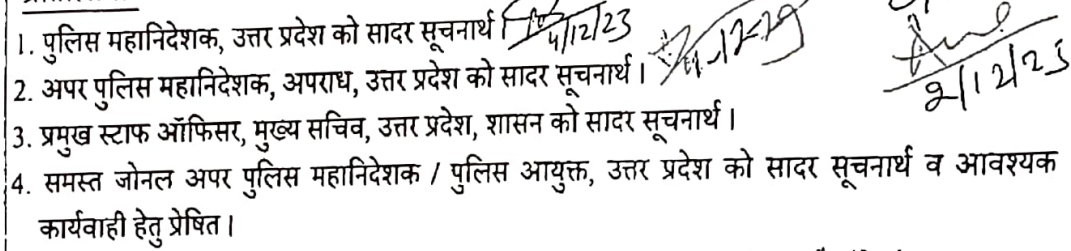 1. पुलिस महानिदेशक, उत्तर प्रदेश को सादर सूचनार्थ। 4/12/23
2. अपर पुलिस महानिदेशक, अपराध, उत्तर प्रदेश को सादर सूचनार्थ। 2/12/23
3. प्रमुख स्टाफ ऑफिसर, मुख्य सचिव, उत्तर प्रदेश, शासन को सादर सूचनार्थ।
4. समस्त जोनल अपर पुलिस महानिदेशक / पुलिस आयुक्त, उत्तर प्रदेश को सादर सूचनार्थ व आवश्यक
कार्यवाही हेतु प्रेषित।